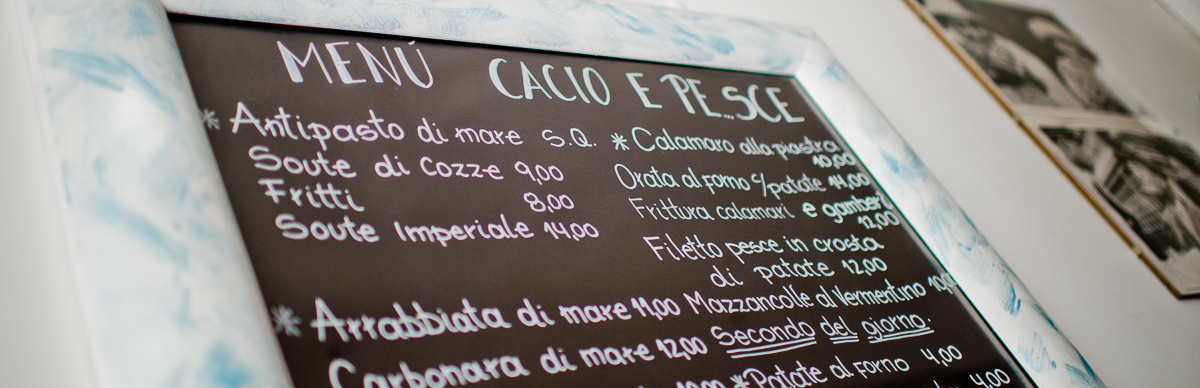 MENÚ CACIO E PE...SCE
* Antipasto di mare S.Q.
Soute di Cozze 9,00
Fritti 8,00
Soute Imperiale 14,00
* Arrabbiata di mare 11,00
Carbonara di mare 12,00
* Calamaro alla piastra
10,00
Orata al forno c/patate 14,00
Frittura calamari e gamberi
12,00
Filetto pesce in crosta
di patate 12,00
Mazzancolle al Vermentino
Secondo del giorno.
* Patate al forno 4,00
4,00